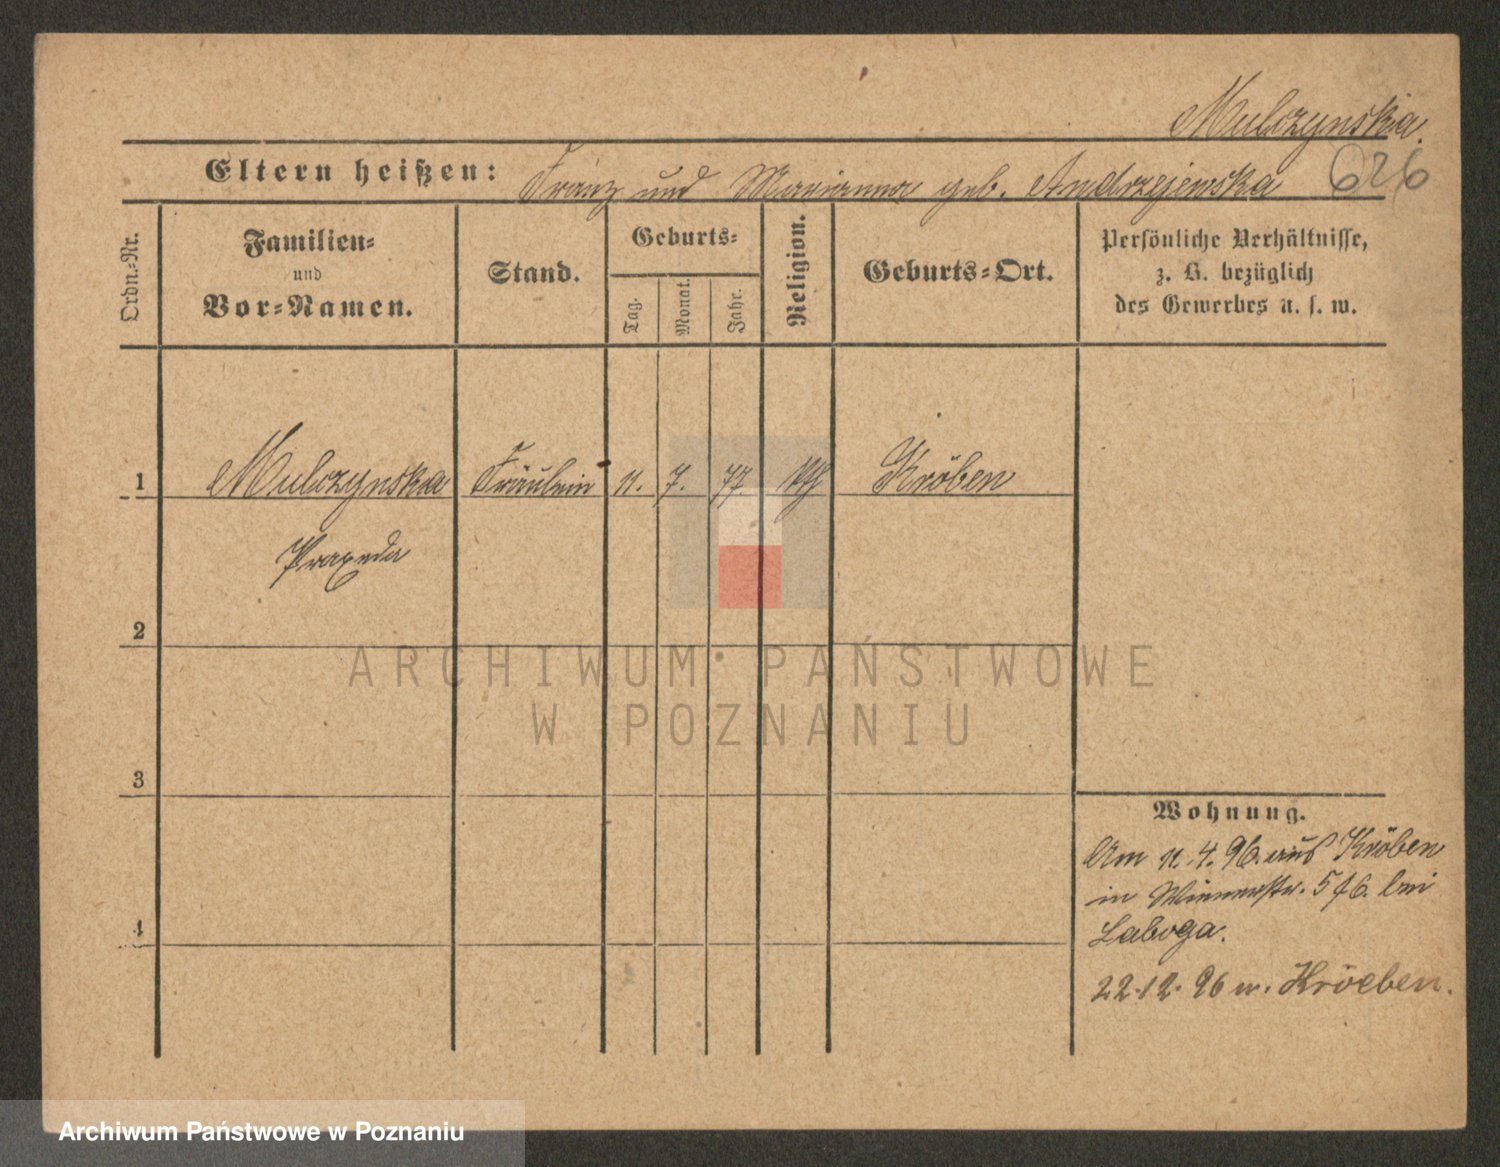 Mulczynska.
Eltern heißen: Franz und Marianna geb. Andrzejewska 626
Ordn.-Nr.
Familien-
und
Vor-Namen.
Stand.
Geburts-
Tag.
Monat.
Jahr.
Religion.
Geburts-Ort.
Persönliche Verhältnisse,
z. B. bezüglich
des Gewerbes u. s. w.
1 Mulczynska Fräulein 11. 7. 77 kth Kröben
Praxeda
2
3
4
Wohnung.
Am 11. 4. 96. aus Kröben
in Wienerstr. 5 bei
Laboga.
22.12. 96 n. Kroeben.
ARCHIWUM PAŃSTWOWE
W POZNANIU
Archiwum Państwowe w Poznaniu